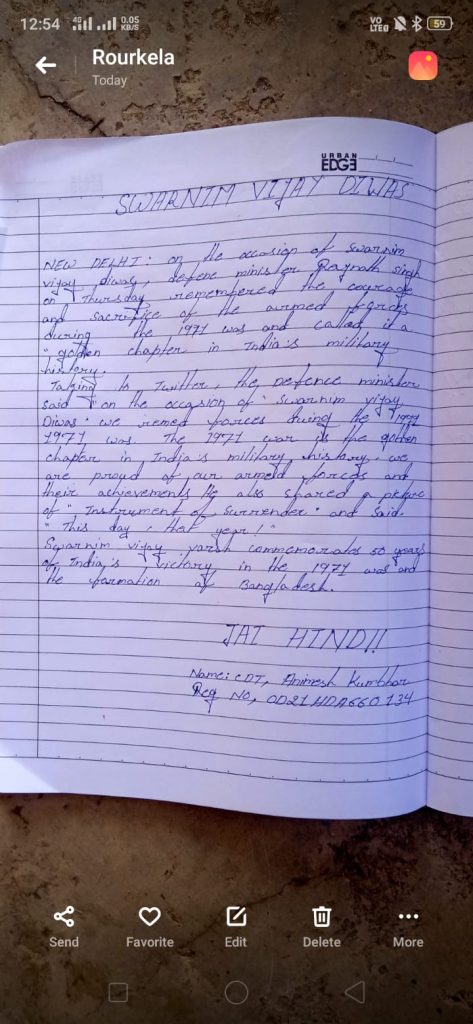 12:54 4G 0.05 KB/S VO LTE 59
Rourkela
Today
URBAN EDGE
SWARNIM VIJAY DIWAS
NEW DELHI: on the occasion of swarnim
vijay diwas, defene minister Rajnath singh
on Thursday remembered the courage
and sacrifice of the armed forces
during the 1971 was and called it a
"golden chapter in India's military
history.
Taking to Twitter, the Defence minister
said "on the occasion of 'swarnim vijay
Diwas' we remed forces duing the 1971
1971 was. The 1971 war is the golden
chaper in India's military history, we
are proud of our armed forces and
their achievements He also shared a
of "Instrument of Surrender" and said.
"This day, that year!"
Swarnim vijay varsh commemorates 50 years
of India's victory in the 1971 was and
the formation of Bangladesh.
JAI HIND!!
Name: CDT, Animesh Kumbhar
Reg NO, OD21HDA660134
Send Favorite Edit Delete More